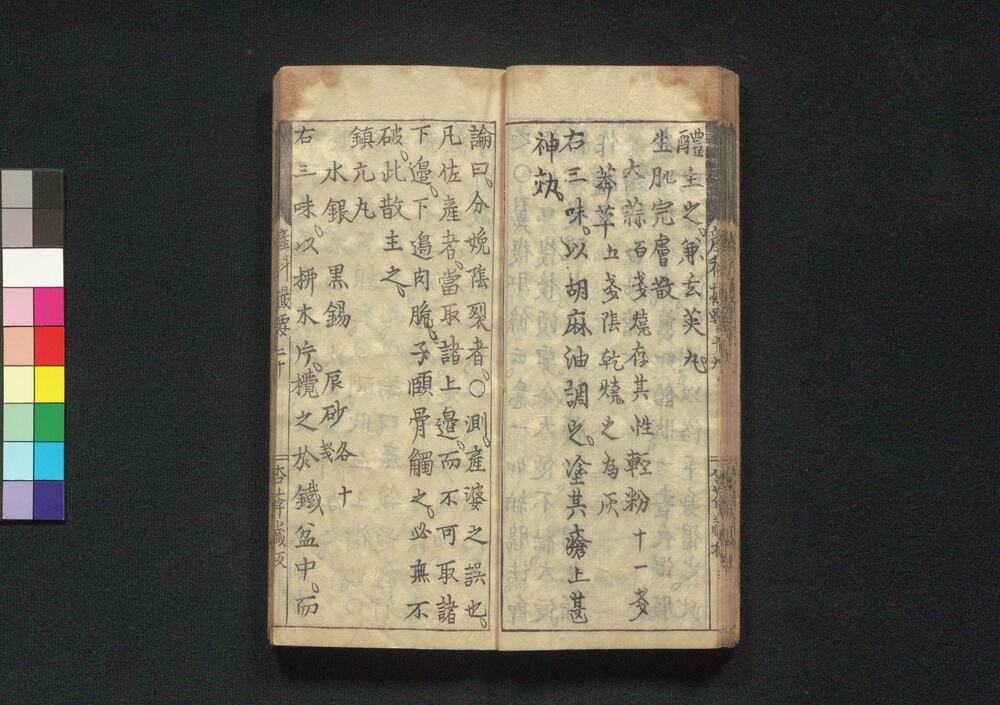 醴主之。兼玄英丸。
生肌完膚散
大蒜百戔燒存其性輕粉十一戔
莽草五戔陰乾燒之為灰
右三味。以胡麻油調之。塗其瘡上甚
神効。
論曰。分娩陰裂者。〇測產婆之誤也。
凡佐產者。當取諸上邉。而不可取諸
下邉。下邉肉脆。子頤骨觸之。必無不
破。此散主之。
鎮亢丸
水銀 黒錫 辰砂各十戔
右三味。以栁木片。攪之於鐵盆中。而
產科撮要 二十
杏草藏版